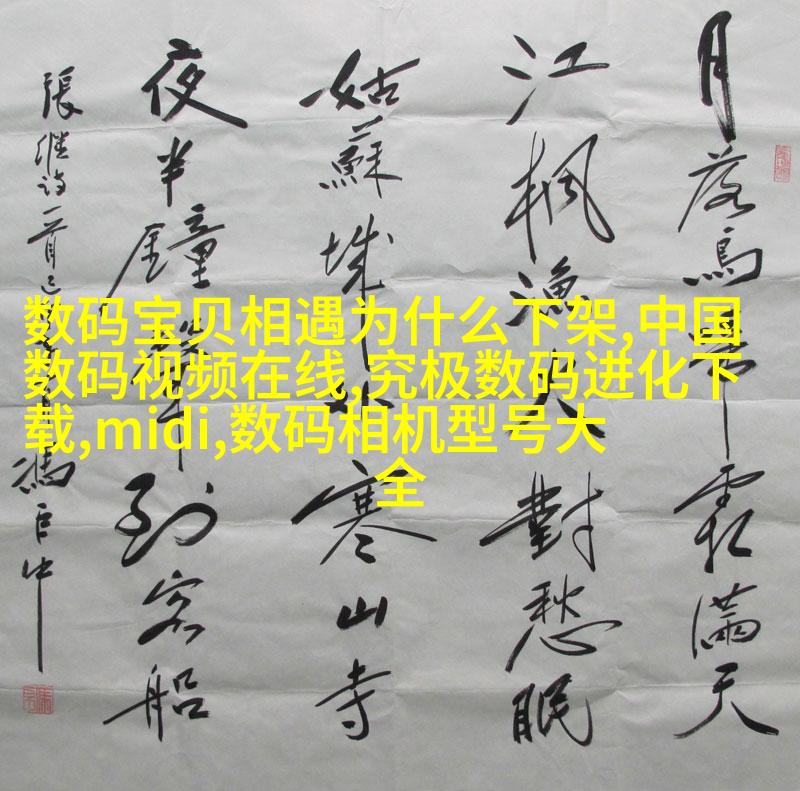 数码宝贝相遇为什么下架,中国
数码视频在线,究极数码进化下
载,midi,数码相机型号大
全
月落烏啼霜滿天
江楓漁火對愁眠
姑蘇城外寒山寺
夜半鐘聲到客船
張繼詩一首